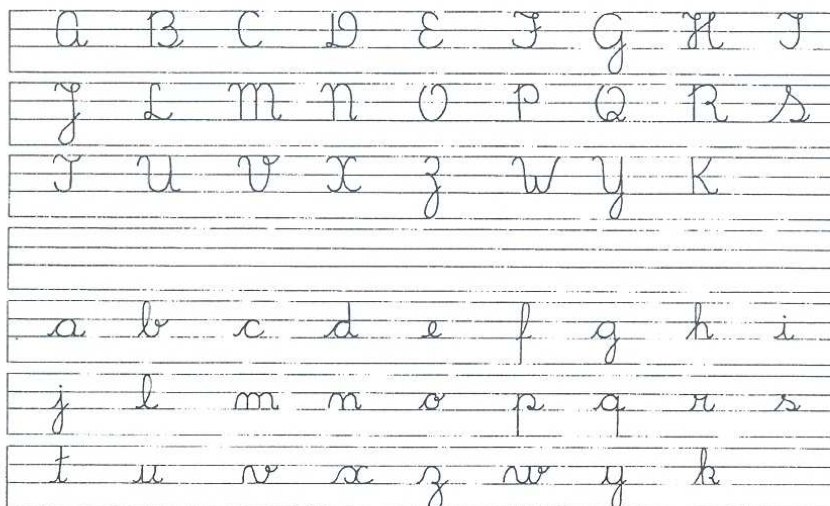 A B C D E F G H I
J L M N O P Q R S
T U V X Z W Y K
a b c d e f g h i
j l m n o p q r s
t u v x z w y k